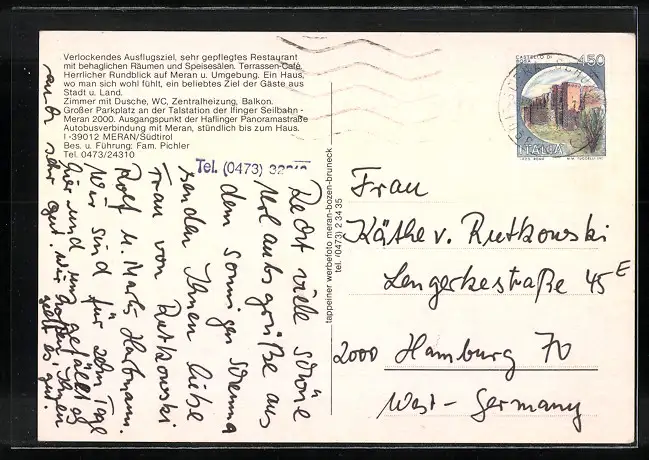 Verlockendes Ausflugsziel, sehr gepflegtes Restaurant
mit behaglichen Räumen und Speisesälen. Terrassen-Café.
Herrlicher Rundblick auf Meran u. Umgebung. Ein Haus,
wo man sich wohl fühlt, ein beliebtes Ziel der Gäste aus
Stadt u. Land.
Zimmer mit Dusche, WC, Zentralheizung, Balkon.
Großer Parkplatz an der Talstation der Ifinger Seilbahn -
Meran 2000. Ausgangspunkt der Haflinger Panoramastraße
Autobusverbindung mit Meran, stündlich bis zum Haus.
I-39012 MERAN/Südtirol
Bes. u. Führung: Fam. Pichler
Tel. 0473/24310
Tel. (0473)
viele schöne
Urlaubsgrüße aus
dem sonnigen Schenna
senden Ihnen liebe
Frau von Rutkowski
Rolf u. Marts Hartmann.
Wir sind für zehn Tage
hier und uns gefällt es
sehr gut. Wir hoffen, Ihnen
geht es gut.
tappeiner werbefoto meran-bozen-bruneck
tel. (0473) 2 34 35
CASTELLO DI
450
ITALIA
Frau
Käthe v. Rutkowski
Lengerkestraße 45 E
2000 Hamburg 70
West-Germany